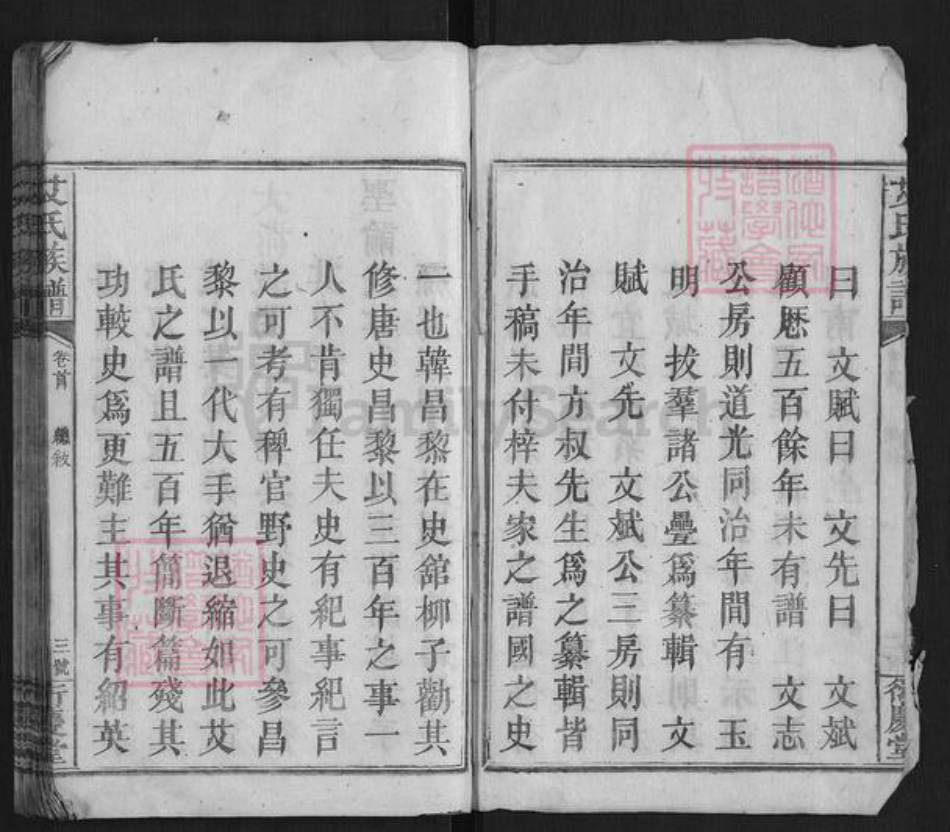 曰　文賦曰　文先曰　文斌
顧厯五百餘年未有譜　文志
公房則道光同治年間有　玉
明　拔羣諸公疊爲纂輯　文
賦　文先　文斌公三房則同
治年間方叔先生爲之纂輯皆
手稿未付梓夫家之譜國之史
一也韓昌黎在史館柳子勸其
修唐史昌黎以三百年之事一
人不肯獨任夫史有紀事紀言
之可考有稗官野史之可參昌
黎以一代大手猶退縮如此艾
氏之譜且五百年簡斷篇殘其
功較史爲更難主其事有紹英
艾氏族譜
卷首
總敘
三號
衍慶堂
FamilySearch